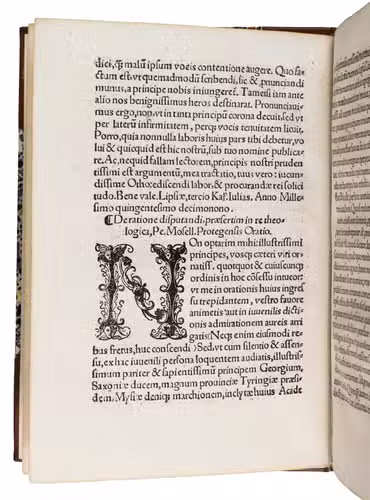 dici, q̃ malũ ipsum vocis contentione augere. Quo fa-
ctum est vt quemadmodũ scribendi, sic & ,pnunciandi
munus, a principe nobis iniungeret̃. Tametsi iam ante
alio nos benignissimus heros destinarat. Pronunciaui-
mus ergo, non vt in tanti principũ corona decuit, sed vt
per laterũ infirmitatem, perq̃ vocis tenuitatem licuit.
Porro, quia nonnulla laboris huius pars tibi debetur, vo
lui & quicquid est hic nostrũ, sub tuo nomine publica-
re. Ac, nequid fallam lectorem, principis nostri pruden
tissimi est argumentũ, mea tractatio, tuus vero: iucun-
dissime Otho: ediscendi labor, & procurandæ rei solici
tudo. Bene vale. Lipsiæ, tercio Kal. Iulias. Anno Mille-
simo quingentesimo decimonono.
De ratione disputandi, præsertim in re theo-
logica, Pe. Mosell. Protegensis Oratio.
NOn optarim mihi: illustrissimi
principes, vosq̃ cæteri viri or-
natiss. quotquot & cuiuscunq̃
ordinis in hoc cõsessu innecor-
vt me in orationis huius ingres
su trepidantem, vestro fauore
animetis aut in iuuenilis dicti-
onis admirationem aureis arri
gatis: Neq̃ enim eiusmodi re-
bus fretus, huc conscendi Sed, vt cum silentio & assen-
su, ex hac iuuenili persona loquentem audiatis, illustris-
simum pariter & sapientissimũ principem Georgium,
Saxoniæ ducem, magnum prouinciæ Tyringiæ præsi-
dem, Mysiæ deniq̃ marchionem, inclytæ huius Acade